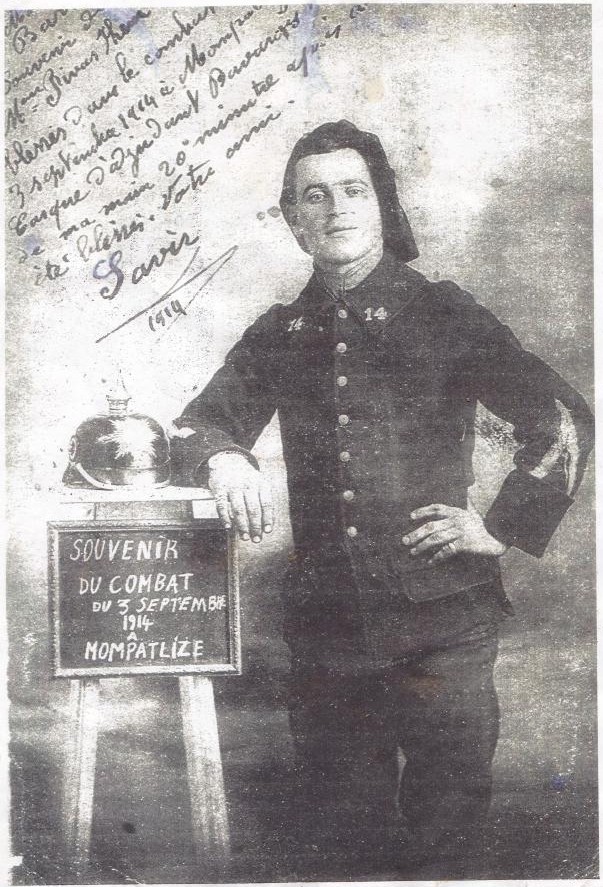 Souvenir
Mme
blessés dans le combat
3 septembre 1914 à Mompa
Casque d'adjudant Bavarois
de ma main 20 minutes après
été blessé. Votre ami.
Savir
1914
14
14
SOUVENIR
DU COMBAT
DU 3 SEPTEMBRE
1914
A
MOMPATLIZE